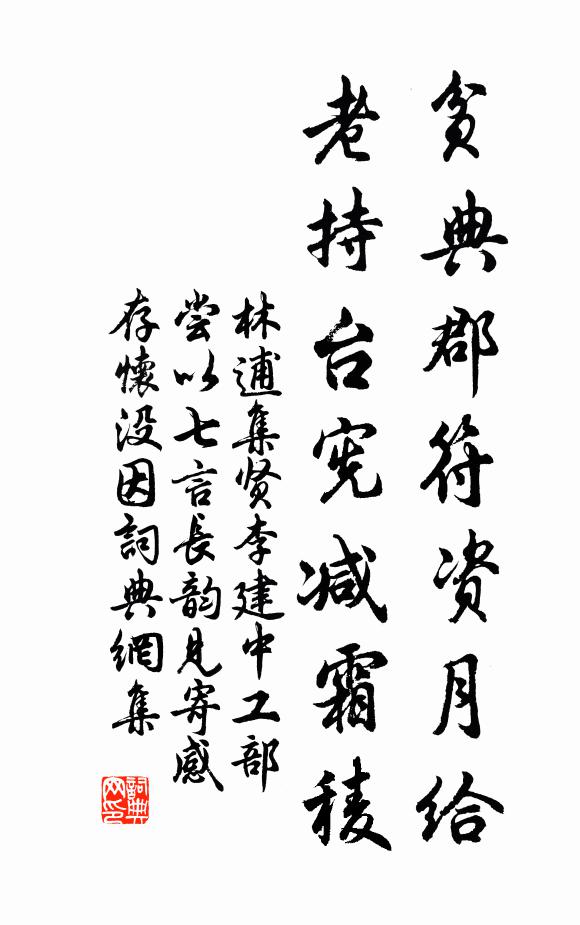 贫典郡符资月给
老持台宪减霜稜
林逋集贤李建中工部
尝以七言長韵见寄感
存懷没因詞典網集
詞典网印